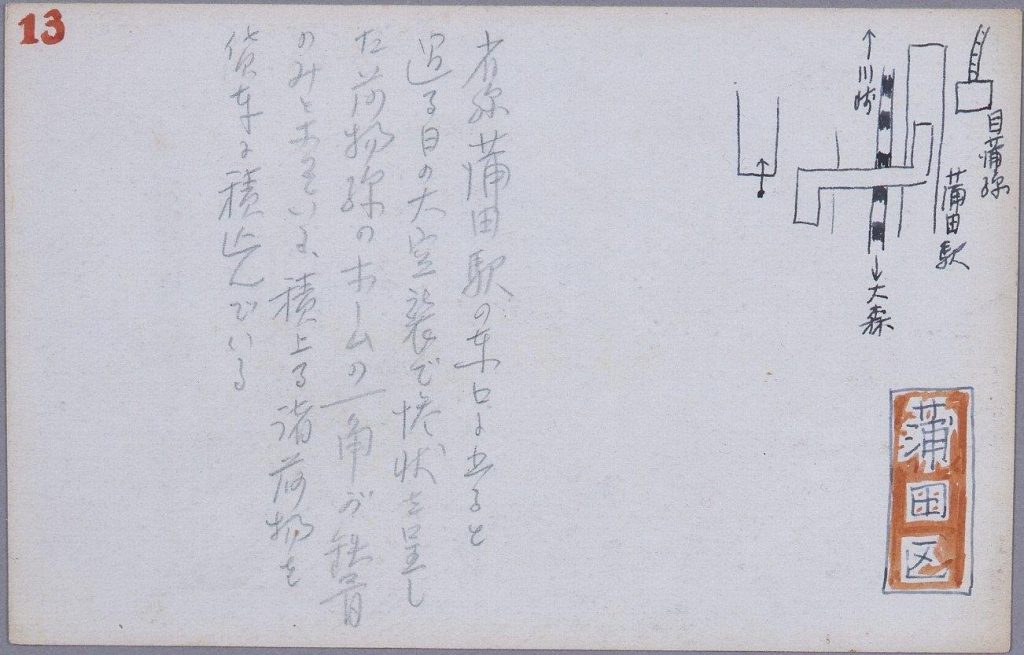 13
↑川崎
目蒲線
蒲田駅
↓大森
蒲田区
省線蒲田駅の東口に出ると
過る日の大空襲で惨状を呈し
た荷物線のホームの一角が鉄骨
のみとなっている、積上る諸荷物を
貨車に積込んでいる